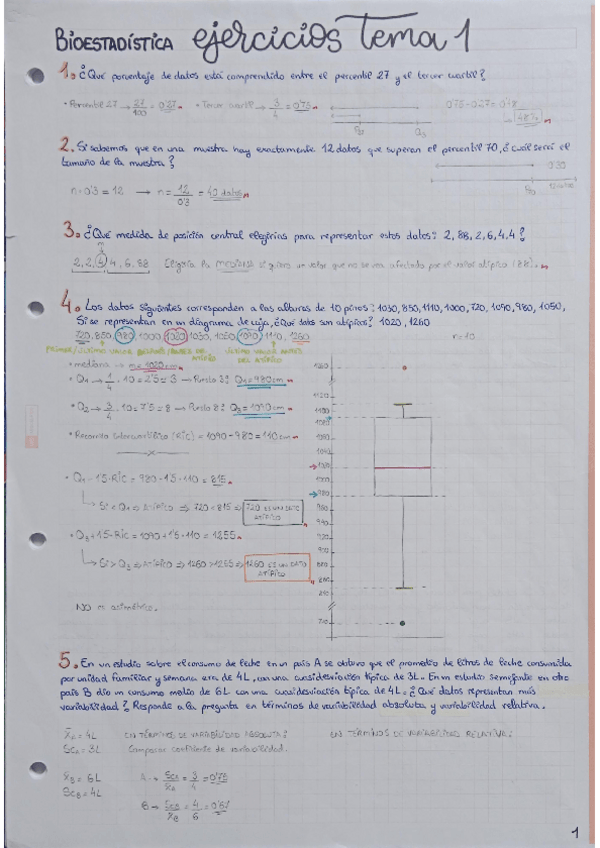 BIOESTADÍSTICA ejercicios Tema 1
1. ¿Qué porcentaje de datos está comprendido entre el percentil 27 y el tercer cuartil?
• Percentil 27 → 27/100 = 0'27 • Tercer cuartil → 3/4 = 0'75 0'75-0'27 = 0'48
↳ 48%
Q3
2. Si sabemos que en una muestra hay exactamente 12 datos que superan el percentil 70, ¿cuál será el
tamaño de la muestra?
0'30
n·0'3 = 12 → n = 12/0'3 = 40 datos
12 datos
3. ¿Qué medida de posición central elegirías para representar estos datos: 2, 88, 2, 6, 4, 4?
2, 2, 4, 4, 6, 88 Elegiría la mediana si quiero un valor que no se vea afectado por el valor atípico (88).
4. Los datos siguientes corresponden a las alturas de 10 pinos: 1030, 850, 1110, 1000, 720, 1090, 980, 1050,
Si se representan en un diagrama de caja, ¿Qué datos son atípicos? 1020, 1260
720, 850, 980, 1000, 1020, 1030, 1050, 1090, 1110, 1260 n=10
• mediana → m = 1020 cm
• Q1 → 1/4 · 10 = 2'5 ≈ 3 → Puesto 3º Q1 = 980 cm
• Q3 → 3/4 · 10 = 7'5 ≈ 8 → Puesto 8º Q3 = 1090 cm
• Recorrido Intercuartílico (RIC) = 1090 - 980 = 110 cm
• Q1 - 1'5·RIC = 980 - 1'5·110 = 815
↳ Si < Q1 ⇒ ATÍPICO ⇒ 720 < 815 ⇒ 720 ES UN DATO
ATÍPICO
• Q3 + 1'5·RIC = 1090 + 1'5·110 = 1255
↳ Si > Q3 ⇒ ATÍPICO ⇒ 1260 > 1255 ⇒ 1260 ES UN DATO
ATÍPICO
NO es asimétrico.
1260
1120
1100
1080
1000
980
960
920
900
720
5. En un estudio sobre el consumo de leche en un país A se obtuvo que el promedio de litros de leche consumida
por unidad familiar y semana era de 4L, con una cuasidesviación típica de 3L. En un estudio semejante en otro
país B dio un consumo medio de 6L con una cuasidesviación típica de 4L. ¿Qué datos representan más
variabilidad? Responde a la pregunta en términos de variabilidad absoluta y variabilidad relativa.
x̄A = 4L EN TÉRMINOS DE VARIABILIDAD ABSOLUTA: EN TÉRMINOS DE VARIABILIDAD RELATIVA:
ScA = 3L Comparar coeficiente de variabilidad.
x̄B = 6L A → ScA/x̄A = 3/4 = 0'75
ScB = 4L
B → ScB/x̄B = 4/6 = 0'67
1